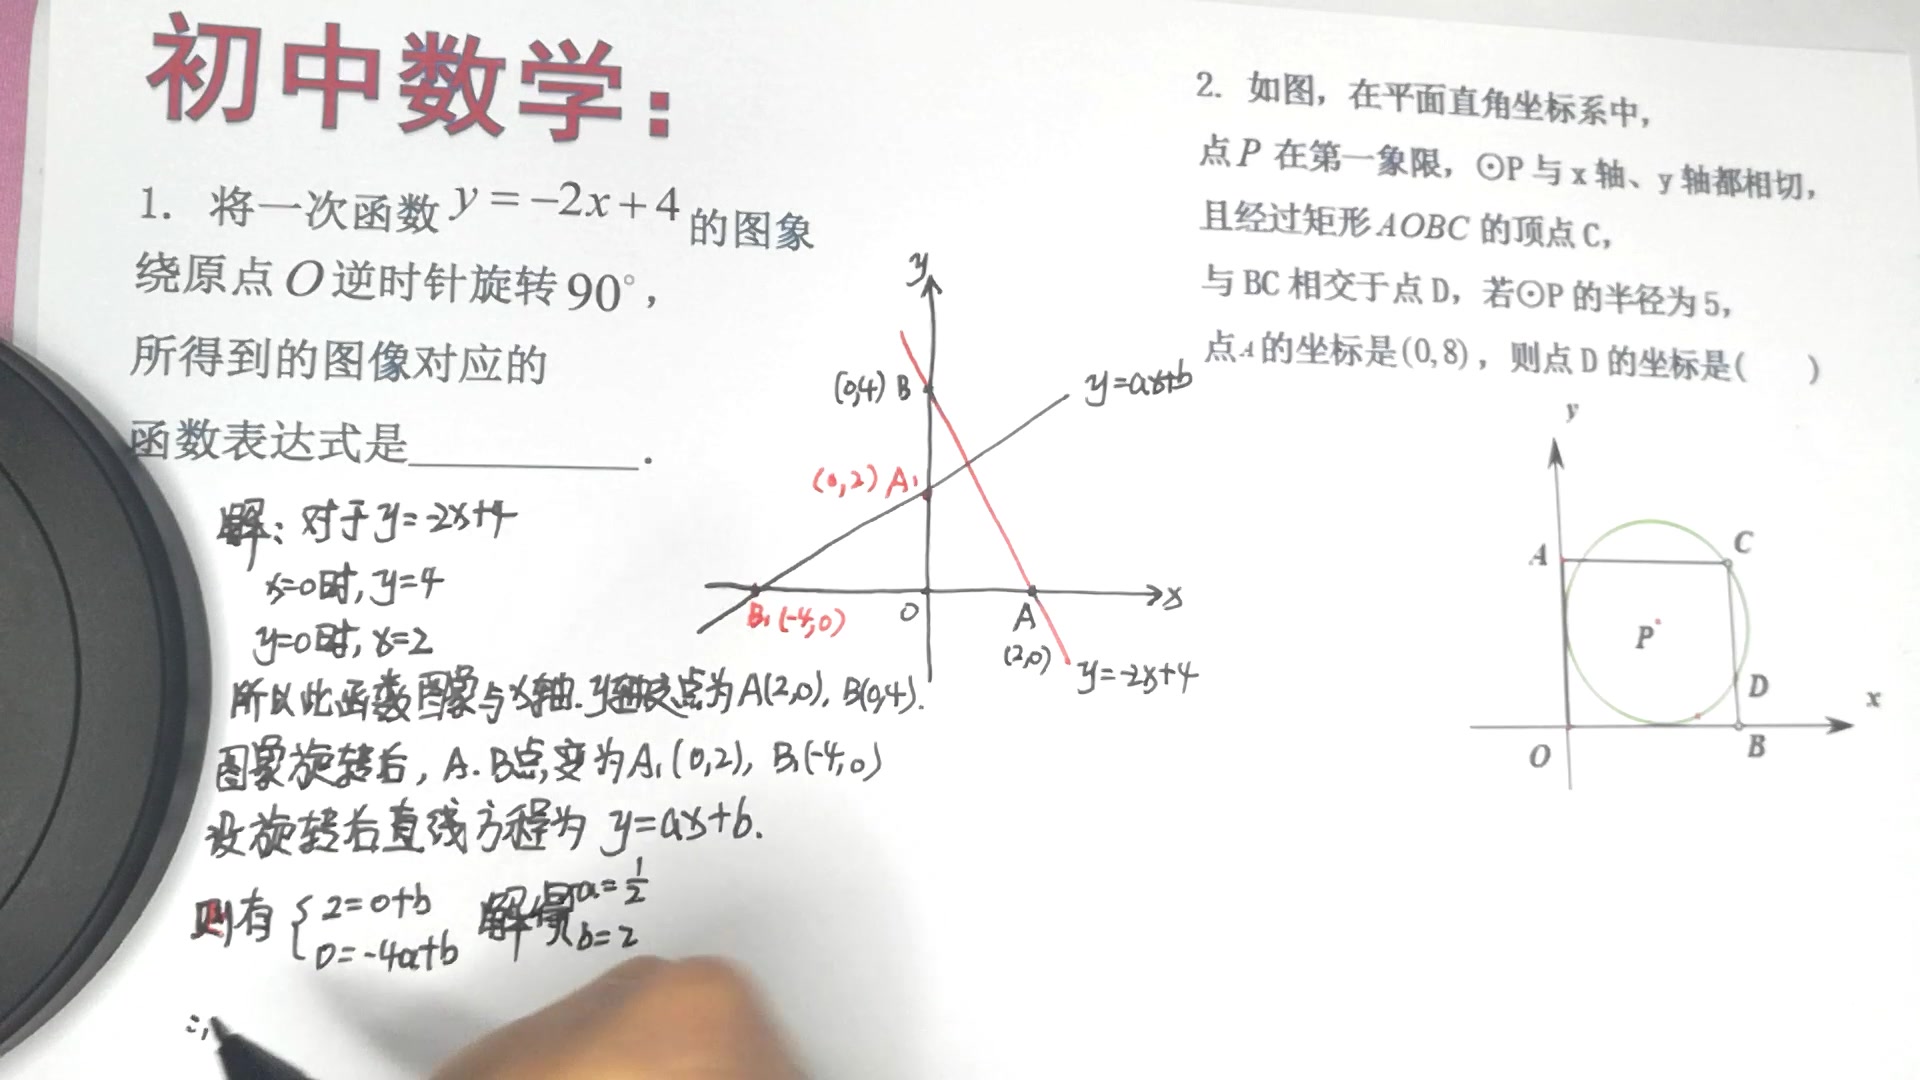 初中数学：
1. 将一次函数 y=-2x+4 的图象
绕原点O逆时针旋转90°，
所得到的图像对应的
函数表达式是__________.
解：对于y=-2x+4
x=0时，y=4
y=0时，x=2
所以此函数图象与x轴.y轴交点为A(2,0), B(0,4).
图象旋转后，A.B点变为A₁(0,2), B₁(-4,0)
设旋转后直线方程为 y=ax+b.
则有 { 2=0+b
0=-4a+b
解得 { a=1/2
b=2
∴
y
(0,4) B
y=ax+b
(0,2) A₁
B₁(-4,0)
O
A
(2,0)
x
y=-2x+4
2. 如图，在平面直角坐标系中，
点P 在第一象限，⊙P与x轴、y轴都相切，
且经过矩形AOBC的顶点C，
与BC相交于点D，若⊙P的半径为5，
点A的坐标是(0,8)，则点D的坐标是( )
y
A
C
P
D
x
O
B